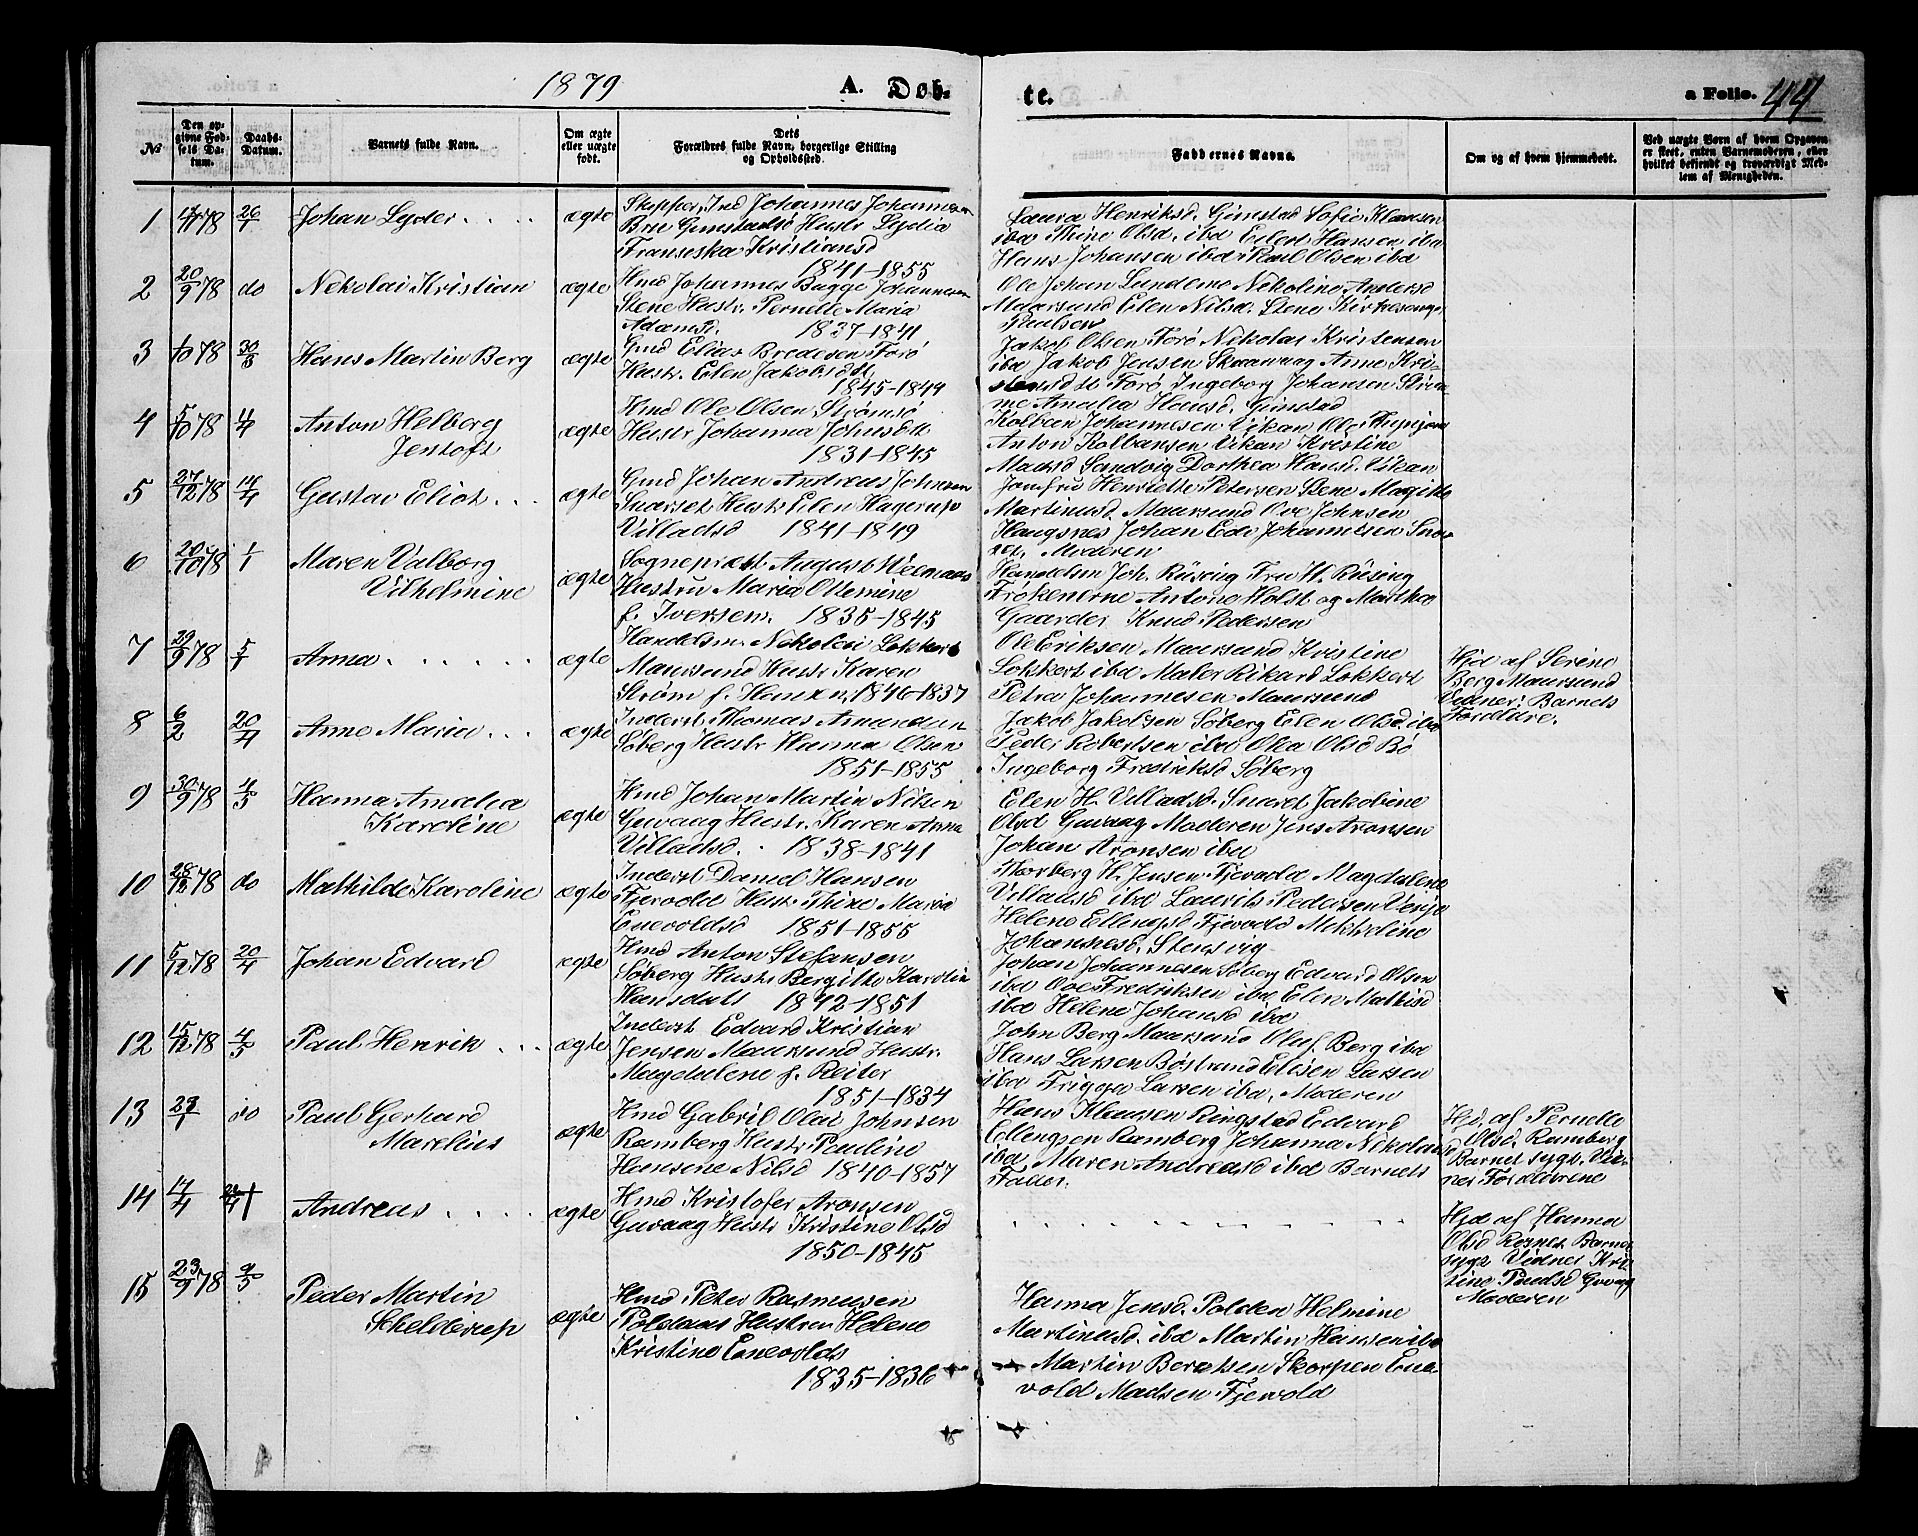 1879 A. Døb- te. a Folio. 44
№
Den op-
givne Fød-
sels Da-
tum.
Daabs-
Datum.
Barnets fulde Navn.
Om ægte
eller uægte
født.
Dets
Forældres fulde Navn, borgerlige Stilling
og Opholdssted.
Faddernes Navne.
Om og af hvem hjemmedøbt.
Ved uægte Børn af hvem Opgaven
er skeet, enten Barnemoderen, eller
hvilket bekjendt og troværdigt Med-
lem af Menigheden.
1 78 26/1 Johan Lyder ægte
Skipper, Ind Johannes Johannesen
Bru Gimstadsö Hustr Lydia
Franseska Kristiansd
1841-1855
Laura Henriksd. Gimstad Sofie Klausen
ibd Thine Olsd. ibd Eilert Hansen ibd
Hans Johansen ibd Paul Olsen ibd
2 20/9 78 do Nekolai Kristian ægte
Hmd Johannes Bugge Johannesen
Stene Hustr. Pernelle Maria
Adamsd. 1837-1841
Ole Johan Lundemo Nekoline Andersd
Maursund Elen Nilsd. Stene Kirkesanger
Paulsen
3 1/10 78 30/3 Hans Martin Berg ægte
Gmd Elias Bredesen Forö
Hustr. Elen Jakobsdt.
1845-1844
Jakob Olsen Forö Nikolas Kristensen
ibd Jakob Jensen Skaanvag Anne Kri-
stensdt Forö Ingeborg Johansen
Amalia Hansd. Gimstad
4 5/10 78 4/4 Anton Helberg
Jentoft ægte
Hmd Ole Olsen Strömsö
Hustr Johanna Johnsdt.
1831-1845
Kolben Johannesen Vikan Ole
Anton Kolbensen Vikan Kristine
Madsd Sandvig Dorthea Hansd. Vikan
5 27/12 78 14/4 Gustav Eliot ægte
Gmd Johan Andreas Johnsen
Snarset Hustr Elen Hagerup
Villadsd 1841-1849
Jomfru Henriette Petersen Bene Magitte
Martinusd. Maursund Ove Johnsen
Haugsnes Johan Edv Johannesen Snar-
set, Moderen
6 20/10 78 1/1 Maren Valborg
Vilhelmine ægte
Sognepræst August Weenaas
Hustru Maria Ottemine
f. Iversen. 1835-1845
Handelsm Joh. Rüsing Fru H. Rüsing
Frökenerne Antone Holst og Martha
Gaarder Knud Pedersen
7 29/9 78 5/1 Anna ægte
Handelsm. Nekolai Lokkert
Maursund Hustr Karen
Ström f. Hansen, 1846-1837
Ole Eriksen Maursund Kristine
Lokkert ibd Maler Rikard Lokkert
Petra Johannesen Maursund
Hjd af Serine
Berg Maursund
Vidner: Barnets
Forældre.
8 6/2 20/4 Anne Maria ægte
Inderst Thomas Amundsen
Söberg Hustr Hanna Olsen
1851-1855
Jakob Jakobsen Söberg Elen Olsd. ibd
Peder Robertsen ibd Oka Olsd Bö
Ingeborg Fredriksd Söberg
9 30/9 78 4/5 Hanna Amalia
Karoline ægte
Hmd Johan Martin Nilsen
Guvaag Hustr. Karen Anna
Villadsd. 1838-1841
Elen H. Villadsd. Snaret Jakobine
Olsd Guvaag Moderen Jens Aronsen
Johan Aronsen ibd
10 28/12 78 do Mathilde Karoline ægte
Inderst Daniel Hansen
Fjevold Hustr Thine Maria
Enevoldsd 1851-1855
Thorberg H. Jensen Fjevold Magdalene
Villadsd ibd Laurits Pedersen Vinje
Helene Ellingsd Fjevold Mekkeline
Johannesd. Stensvig
11 5/12 78 20/4 Johan Edvard ægte
Hmd Anton Stefansen
Söberg Hustr Bergitte Karolin
Hansdatt 1842-1851
Johan Johannesen Söberg Edvard Olsen
ibd Ove Fredriksen ibd Elen Mathisd
ibd Helene Johansd ibd
12 15/12 78 4/5 Paul Henrik ægte
Inderst Edvard Kristian
Jensen Maursund Hustr.
Magdalene f. Reiter
1851-1834
John Berg Maursund Oluf Berg ibd
Hans Larsen Böstrand Elisen Larsen
ibd Frigga Larsen ibd, Moderen
13 do Paul Gerhard
Marelius ægte
Hmd Gabril Olai Johnsen
Ramberg Hustr Pauline
Hansine Nilsd 1840-1857
Hans Klausen Ringstad Edvard
Ellingsen Ramberg Johanna Nikolaisd
ibd Maren Andreasd ibd Barnets
Fader.
Hjd. af Pernelle
Olsd. Ramberg
Barnet sygt. Vid-
ner Forældrene
14 17/4 Andreas ægte
Hmd Kristofer Aronsen
Guvaag Hustr Kristine Olsd
1850-1845
Hjd af Hanna
Olsd Barnet
sygt Vidner Kri-
stine Paulsd Guvaag
Moderen
15 23/9 78 9/5 Peder Martin
Schelderup ægte
Hmd Peter Rasmusen
Poldaas Hustru Helene
Kristine Enevolds
1835-1836
Hanna Jensd. Polden Helmine
Martinusd. ibd Martin Hansen ibd
Martin Berntsen Skorpen Ene-
vold Madsen Fjevold